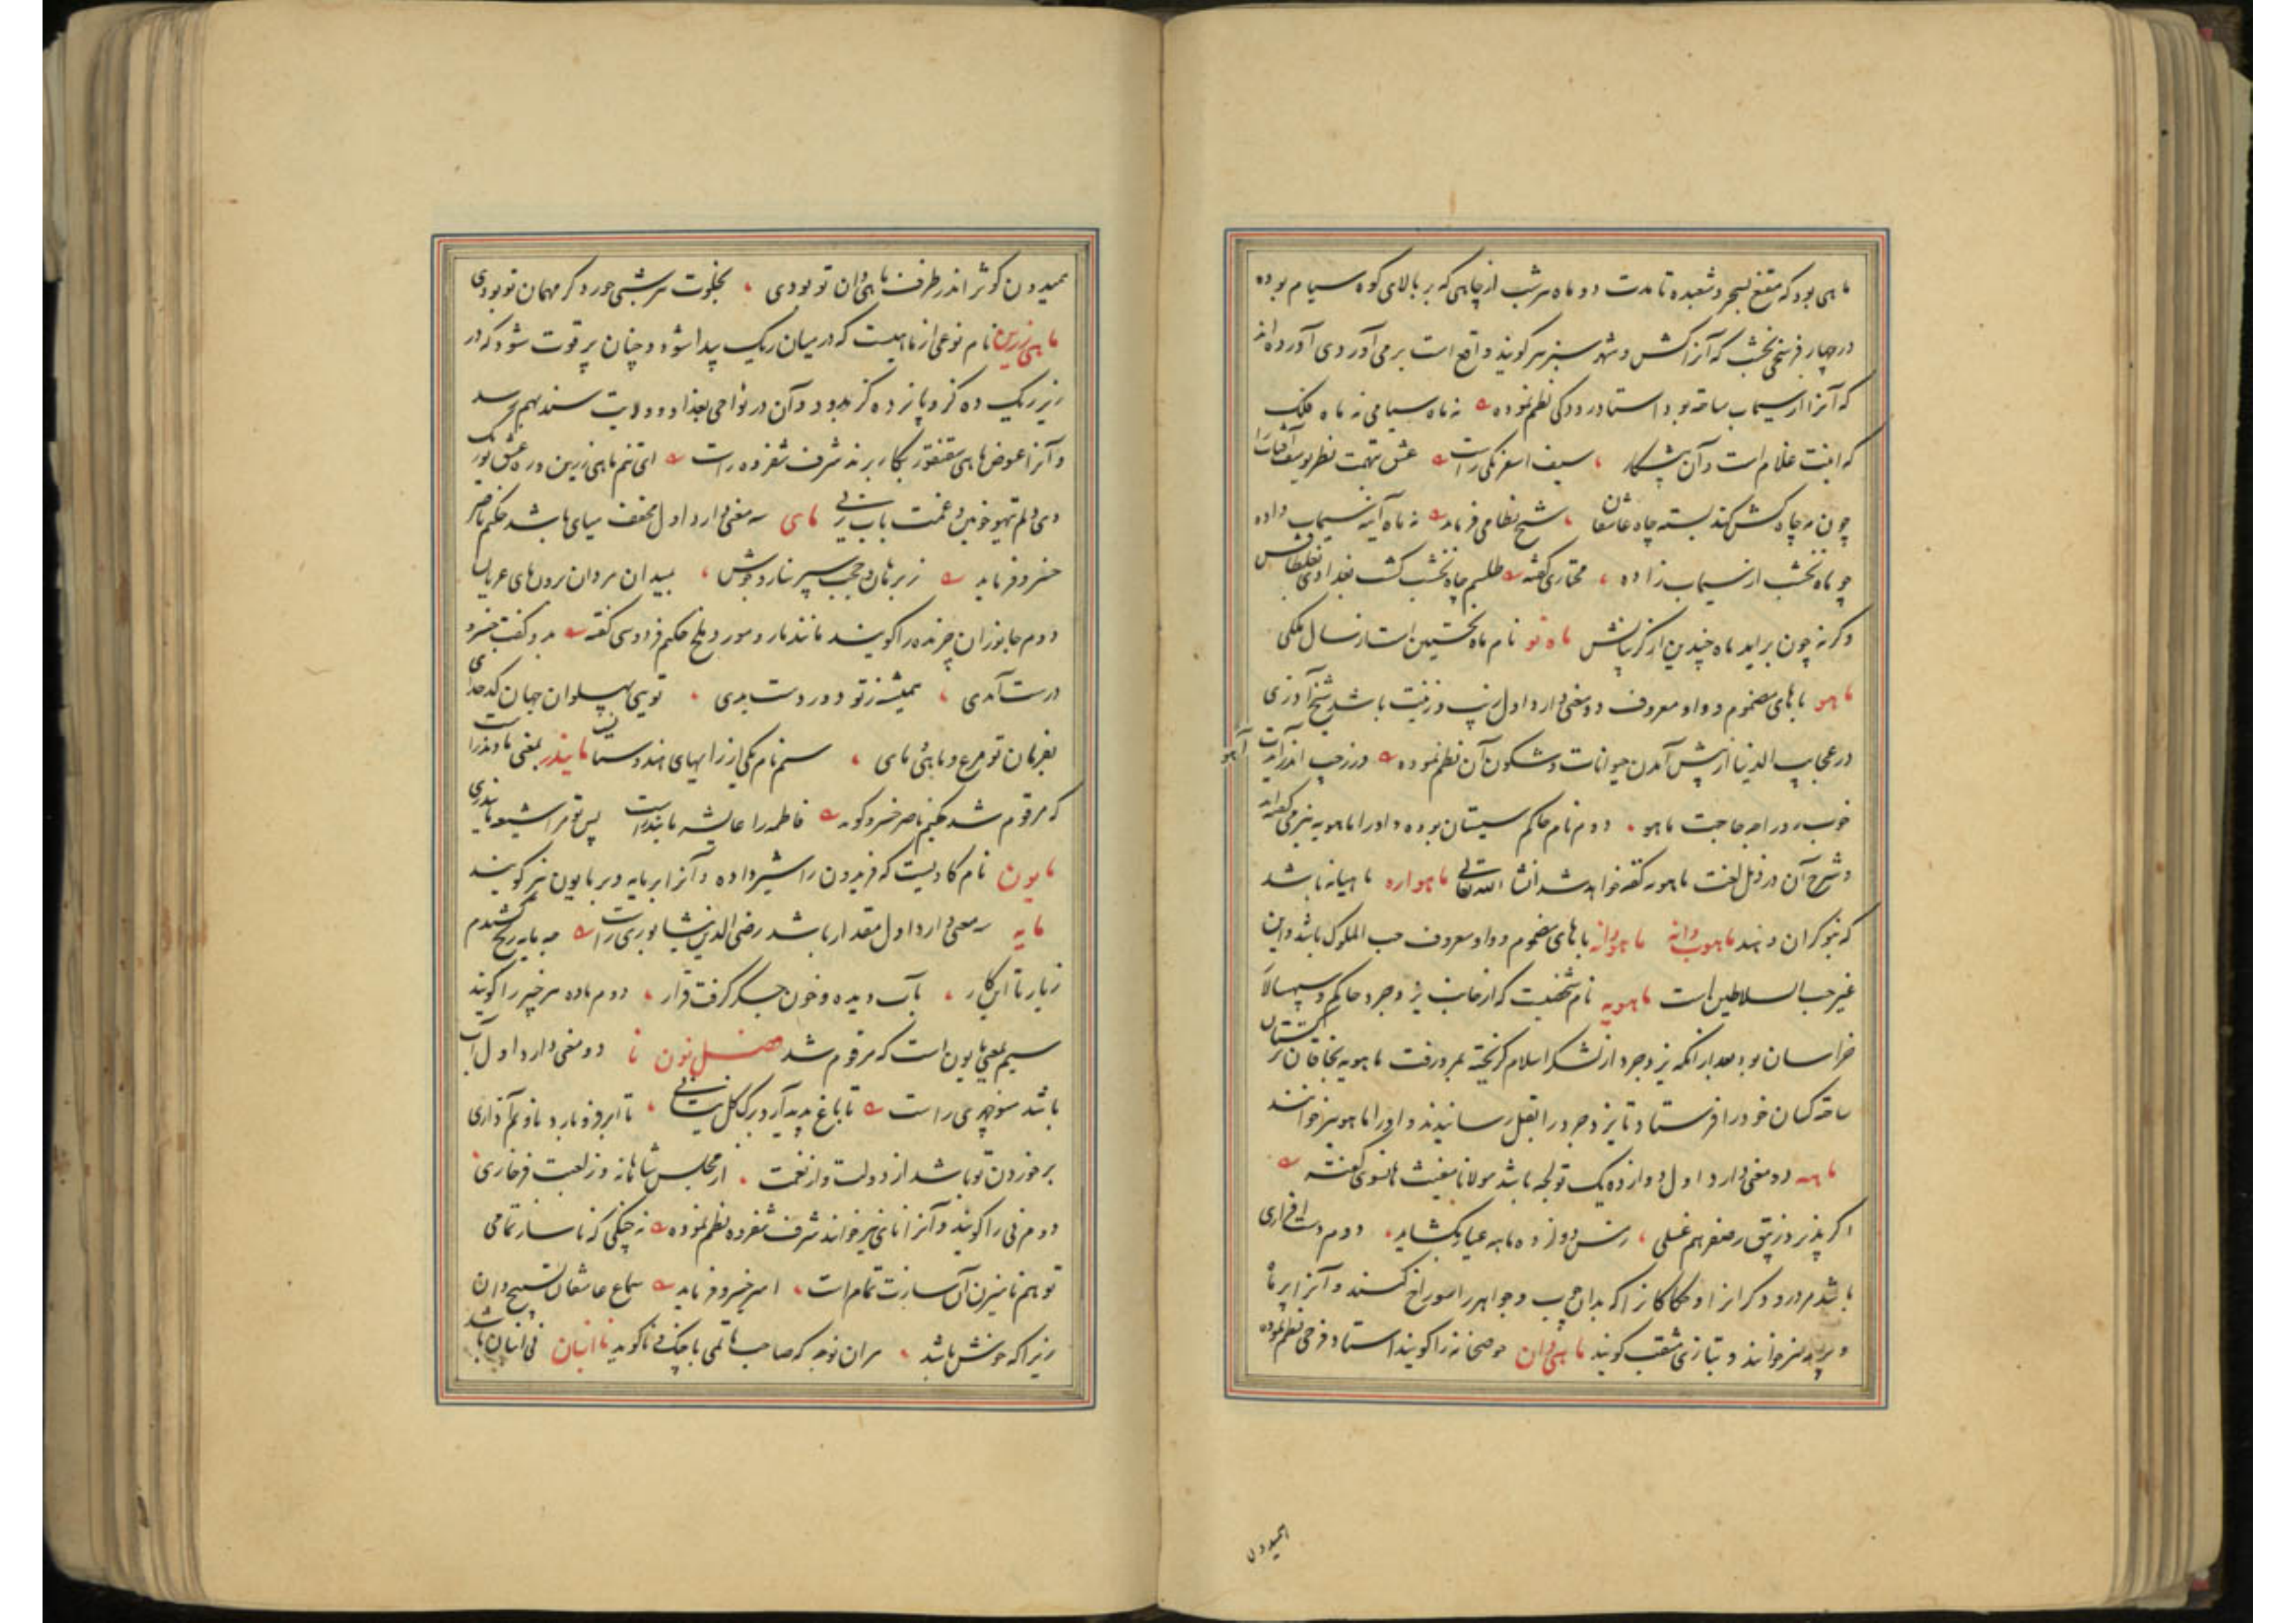 ماهی بود که مقنع بسحر و شعبده تا مدت دو ماه هر شب از چاهی که بر بالای کوه سیام بوده
در چهار فرسخی نخشب که آنرا کش و شهر سبز هم گویند واقع است بر می آوردی آورده اند
که آنرا از سیماب ساخته بود استاد رودکی نظم نموده نه ماه سیامی نه ماه فلک
که اینت غلام است و آن پیشکار سیف اسفرنگی راست عشق تهمت نظر یوسف آفتاب را
چون مه چاه کش کند بسته چاه عاشقان شیخ نظامی فرماید نه ماه آینه سیماب داده
چو ماه نخشب از سیماب زاده مختاری گفته طلسم چاه نخشب گشت بغدادی
وگرنه چون برآید ماه چندین از گریبانش ماه نو نام ماه نخستین است از سال ملکی
ماهو با های مضموم و واو معروف دو معنی دارد اول زیب و زینت باشد شیخ آذری
در عجایب الدنیا از پیش آمدن حیوانات و شکون آن نظم نموده ور ز چپ اندر آیدت آهو
خوب بود در امر حاجت ماهو دوم نام حاکم سیستان بوده و او را ماهویه نیز می گفته اند
و شرح آن در ذیل لغت ماهویه گفته خواهد شد انشا الله تعالی ماهواره ماهیانه باشد
که بنوکران دهند ماهوب دانه ماهودانه با های مضموم و واو معروف حب الملوک باشد و این
غیر حب السلاطین است ماهویه نام شخصیت که از جانب یزدجرد حاکم و سپهسالار
خراسان بود بعد از آنکه یزدجرد از لشکر اسلام گریخته بمرو رفت ماهویه بخاقان ترکستان
ساخته کسان خود را فرستاد تا یزدجرد را بقتل رسانیدند و او را ماهو نیز خوانند
ماهه دو معنی دارد اول دوازده یک تولجه باشد مولانا مغیث هانسوی گفته
اگر پذیرد زیبق رصفر هم غسلی زمس دوازده ماهه عیار بگشاید دوم دست افزاری
باشد مر درودگرانرا و حکاکانرا که بدان چوب و جواهر را سوراخ کنند و آنرا برماه
و برماهه نیز خوانند و بتازی مثقب گویند ماهی دان حوضخانه را گویند استاد فرخی نظم نموده
همیدون
همیدون کوثر اندر طرف ماهی دان تو بودی بخلوت هر شبی حور دگر مهمان تو بودی
ماهی زرین نام نوعی از ماهیست که در میان ریگ پیدا شود و چنان پر قوت شود که در
زیر ریگ ده گز و پانزده گز بدود و آن در نواحی بغداد و ولایت سند بهم رسد
و آنرا عوض ماهی سقنقور بکار برند شرف شفروه راست ای تنم ماهی زرین در ره عشق تو ریگ
وی دلم تیهو خونین و غمت بابزنی مای سه معنی دارد اول مخفف میای باشد حکیم ناصر
خسرو فرماید زبرهان و حجب سپر ساز و جوشن بمیدان مردان برون مای عریان
دوم جانوران چرنده را گویند مانند مار و مور و ملخ حکیم فردوسی گفته بدو گفت خسرو
درست آمدی همیشه ز تو دور دست بدی تویی پهلوان جهان کدخدای
بفرمان تو مرغ و ماهی و مای سیم نام یکی از رایهای هندوستانست مایندر بمعنی مادندر است
که مرقوم شد حکیم ناصر خسرو گوید فاطمه را عایشه مایندر است پس تو مرا شیعه مایندری
مایون نام گاویست که فریدون را شیر داده و آنرا برمایه و برمایون نیز گویند
مایه سه معنی دارد اول مقدار باشد رضی الدین نیشابوری راست چه مایه رنج کشیدم
ز یار تا این کار بآب دیده و خون جگر گرفت قرار دوم ماده هر چیز را گویند
سیم بمعنی مایون است که مرقوم شد فصل نون نا دو معنی دارد اول آب
باشد منوچهری راست تا باغ پدید آرد برگ گل بستانی تا ابر فرو بارد نا و نم آذاری
برخوردن تو باشد از دولت و از نعمت از مجلس شاهانه وز لعبت فرخاری
دوم نی را گویند و آنرا نای نیز خوانند شرف شفروه نظم نموده نه چنگی که نا ساز تمامی
تو هم نا میزن آن سازت تمام است امیر خسرو فرماید سماع عاشقان تسبیح دان
زیرا که خوش باشد بران نوعی که صاحب ماتمی با چنگ و نا گوید نا انبان نی انبان باشد